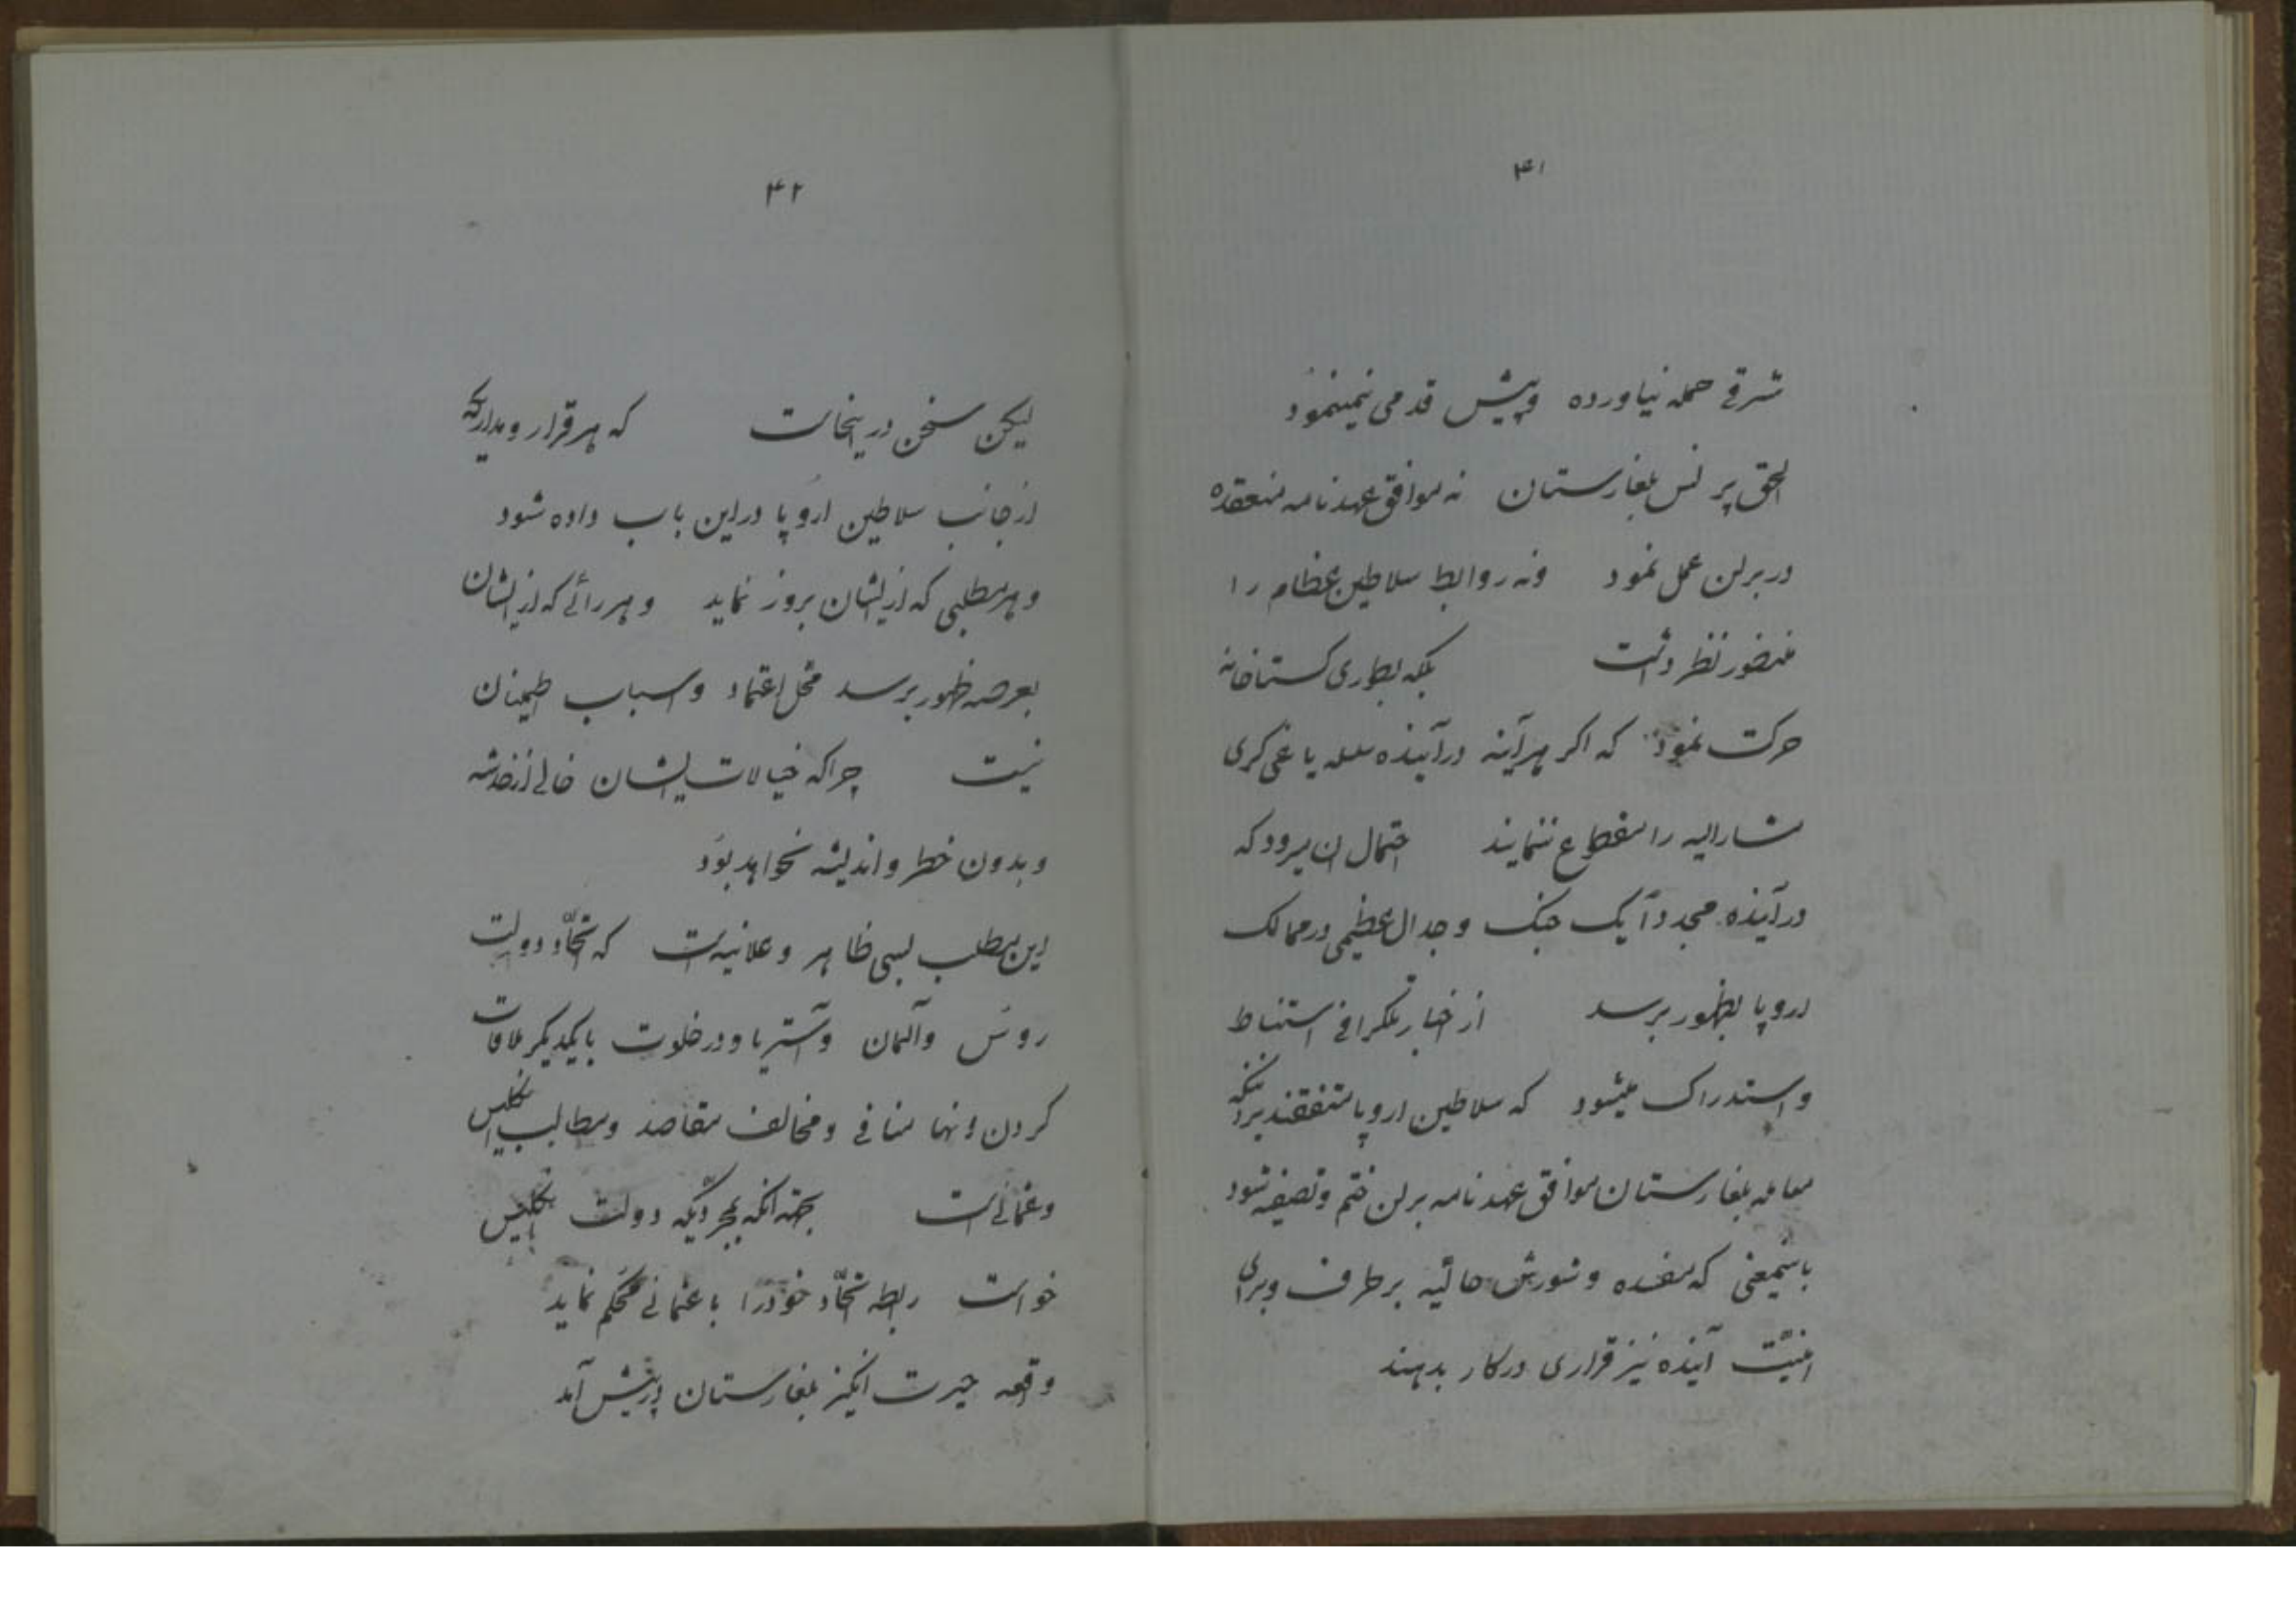 ۴۱
شرقی حمله نیاورده و پیش قدمی نمینمود
الحق پرنس بلغارستان نه موافق عهدنامه منعقده
در برلن عمل نمود و نه روابط سلاطین عظام را
منضور نظر داشت بلکه بطوری گستاخانه
حرکت نمود که اگر هرآینه در آینده سلسله یاغی گری
مشارالیه را انقطاع ننمایند احتمال آن میرود که
در آینده مجدداً یک جنگ و جدال عظیمی در ممالک
اروپا بظهور برسد از اخبار تلگرافی استنباط
و استدراک میشود که سلاطین اروپا متفقند براینکه
معامله بلغارستان موافق عهدنامه برلن ختم و تصفیه شود
باینمعنی که مفسده و شورش حالیه برطرف و برای
امنیّت آینده نیز قراری در کار بدهند
۴۲
لیکن سخن در اینجاست که هر قرار و مدار یکه
از جانب سلاطین اروپا در این باب داده شود
و هر مطلبی که از ایشان بروز نماید و هر رائے که از ایشان
بعرصه ظهور برسد محل اعتماد و اسباب اطمینان
نیست چرا که خیالات ایشان خالی از خدشه
و بدون خطر و اندیشه نخواهد بود
این مطلب بسی ظاهر و علانیه است که اتحّاد دولت
روس و آلمان و آستریا و در خلوت با یکدیگر ملاقات
کردن اونها منافی و مخالف مقاصد و مطالب انگلیس
و عثمانی است بجهة انکه بمجردیکه دولت انگلیس
خواست رابطه اتحّاد خود را با عثمانی محکم نماید
واقعه حیرت انگیز بلغارستان در پیش آمد